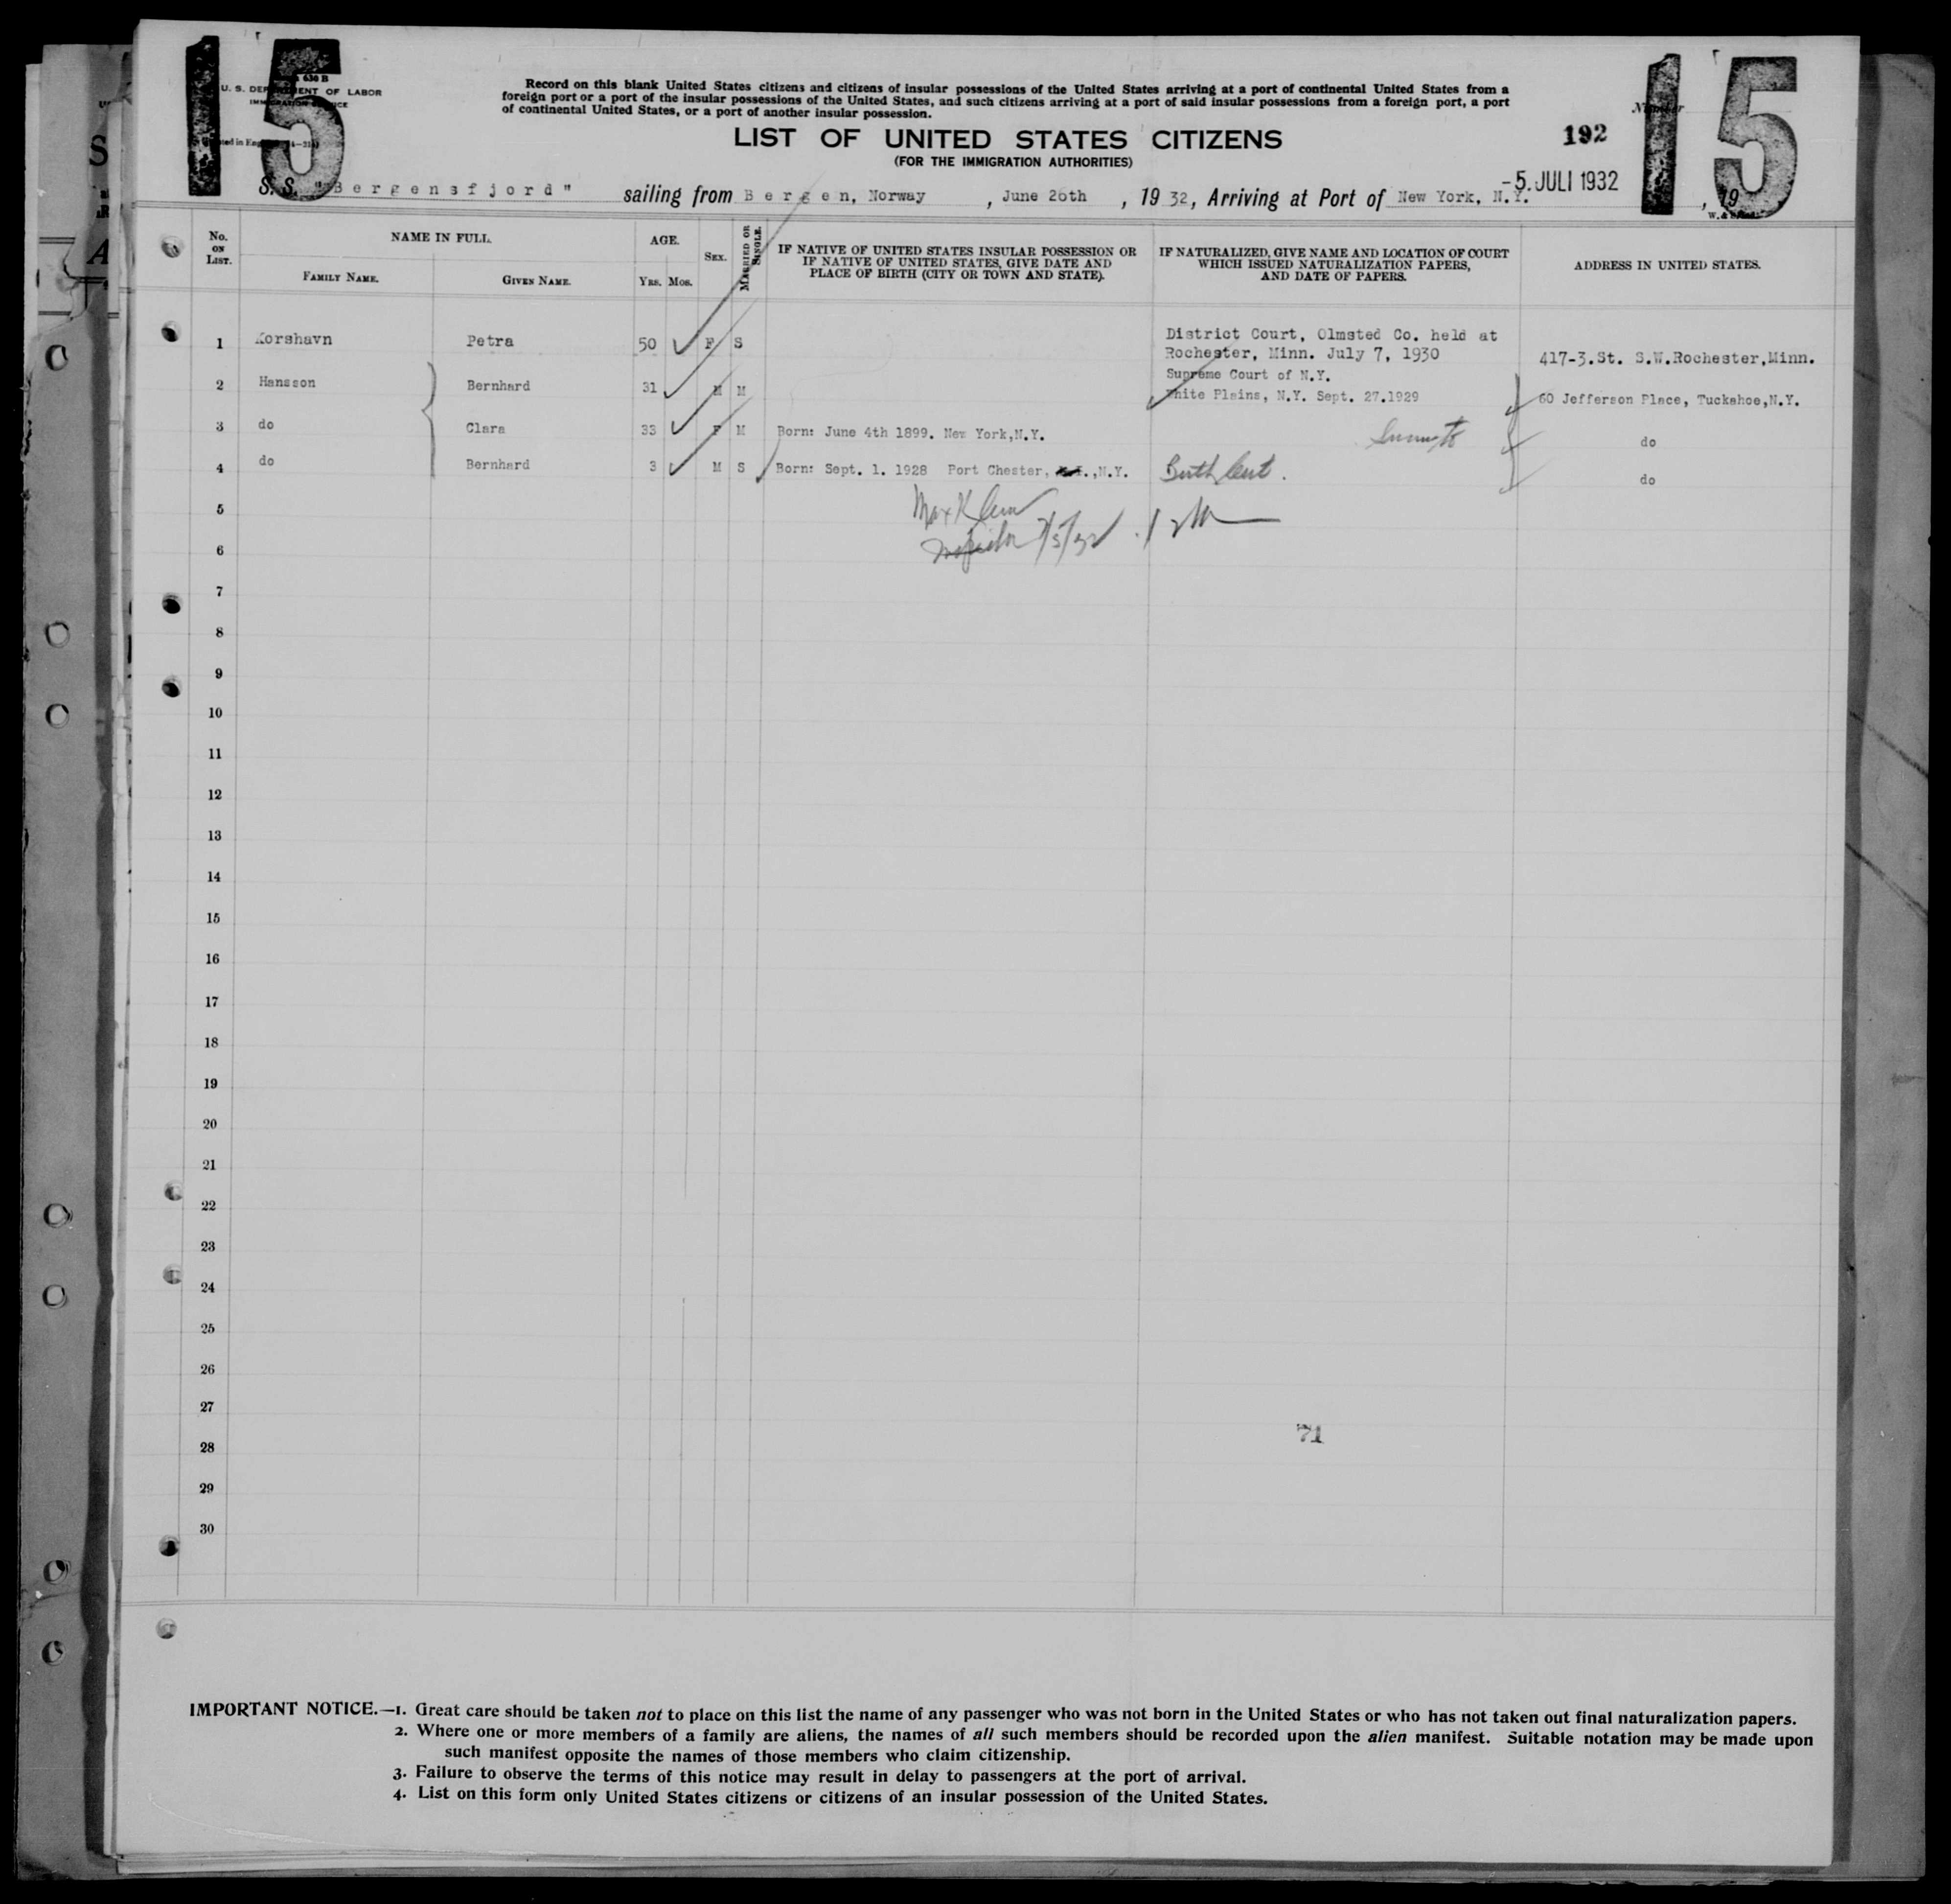 15
15
630 B
U. S. DEPARTMENT OF LABOR
IMMIGRATION SERVICE
Record on this blank United States citizens and citizens of insular possessions of the United States arriving at a port of continental United States from a
foreign port or a port of the insular possessions of the United States, and such citizens arriving at a port of said insular possessions from a foreign port, a port
of continental United States, or a port of another insular possession.
LIST OF UNITED STATES CITIZENS
(FOR THE IMMIGRATION AUTHORITIES)
192
Number
-5. JULI 1932
S. S. "Bergensfjord" sailing from Bergen, Norway, June 26th, 1932, Arriving at Port of New York, N.Y. , 19
No. ON LIST.
NAME IN FULL.
FAMILY NAME.
GIVEN NAME.
AGE.
YRS. MOS.
SEX.
MARRIED OR SINGLE.
IF NATIVE OF UNITED STATES INSULAR POSSESSION OR
IF NATIVE OF UNITED STATES, GIVE DATE AND
PLACE OF BIRTH (CITY OR TOWN AND STATE).
IF NATURALIZED, GIVE NAME AND LOCATION OF COURT
WHICH ISSUED NATURALIZATION PAPERS,
AND DATE OF PAPERS.
ADDRESS IN UNITED STATES.
1 Korshavn Petra 50 F S District Court, Olmsted Co. held at
Rochester, Minn. July 7, 1930 417-3.St. S.W.Rochester,Minn.
Supreme Court of N.Y.
2 Hansson Bernhard 31 M M White Plains, N.Y. Sept. 27.1929 60 Jefferson Place, Tuckahoe,N.Y.
3 do Clara 33 F M Born: June 4th 1899. New York,N.Y. do
4 do Bernhard 3 M S Born: Sept. 1. 1928 Port Chester, N.Y. Birth Cert. do
Max Klein
Inspector 7/5/32
5
6
7
8
9
10
11
12
13
14
15
16
17
18
19
20
21
22
23
24
25
26
27
71
28
29
30
IMPORTANT NOTICE.—1. Great care should be taken not to place on this list the name of any passenger who was not born in the United States or who has not taken out final naturalization papers.
2. Where one or more members of a family are aliens, the names of all such members should be recorded upon the alien manifest. Suitable notation may be made upon
such manifest opposite the names of those members who claim citizenship.
3. Failure to observe the terms of this notice may result in delay to passengers at the port of arrival.
4. List on this form only United States citizens or citizens of an insular possession of the United States.